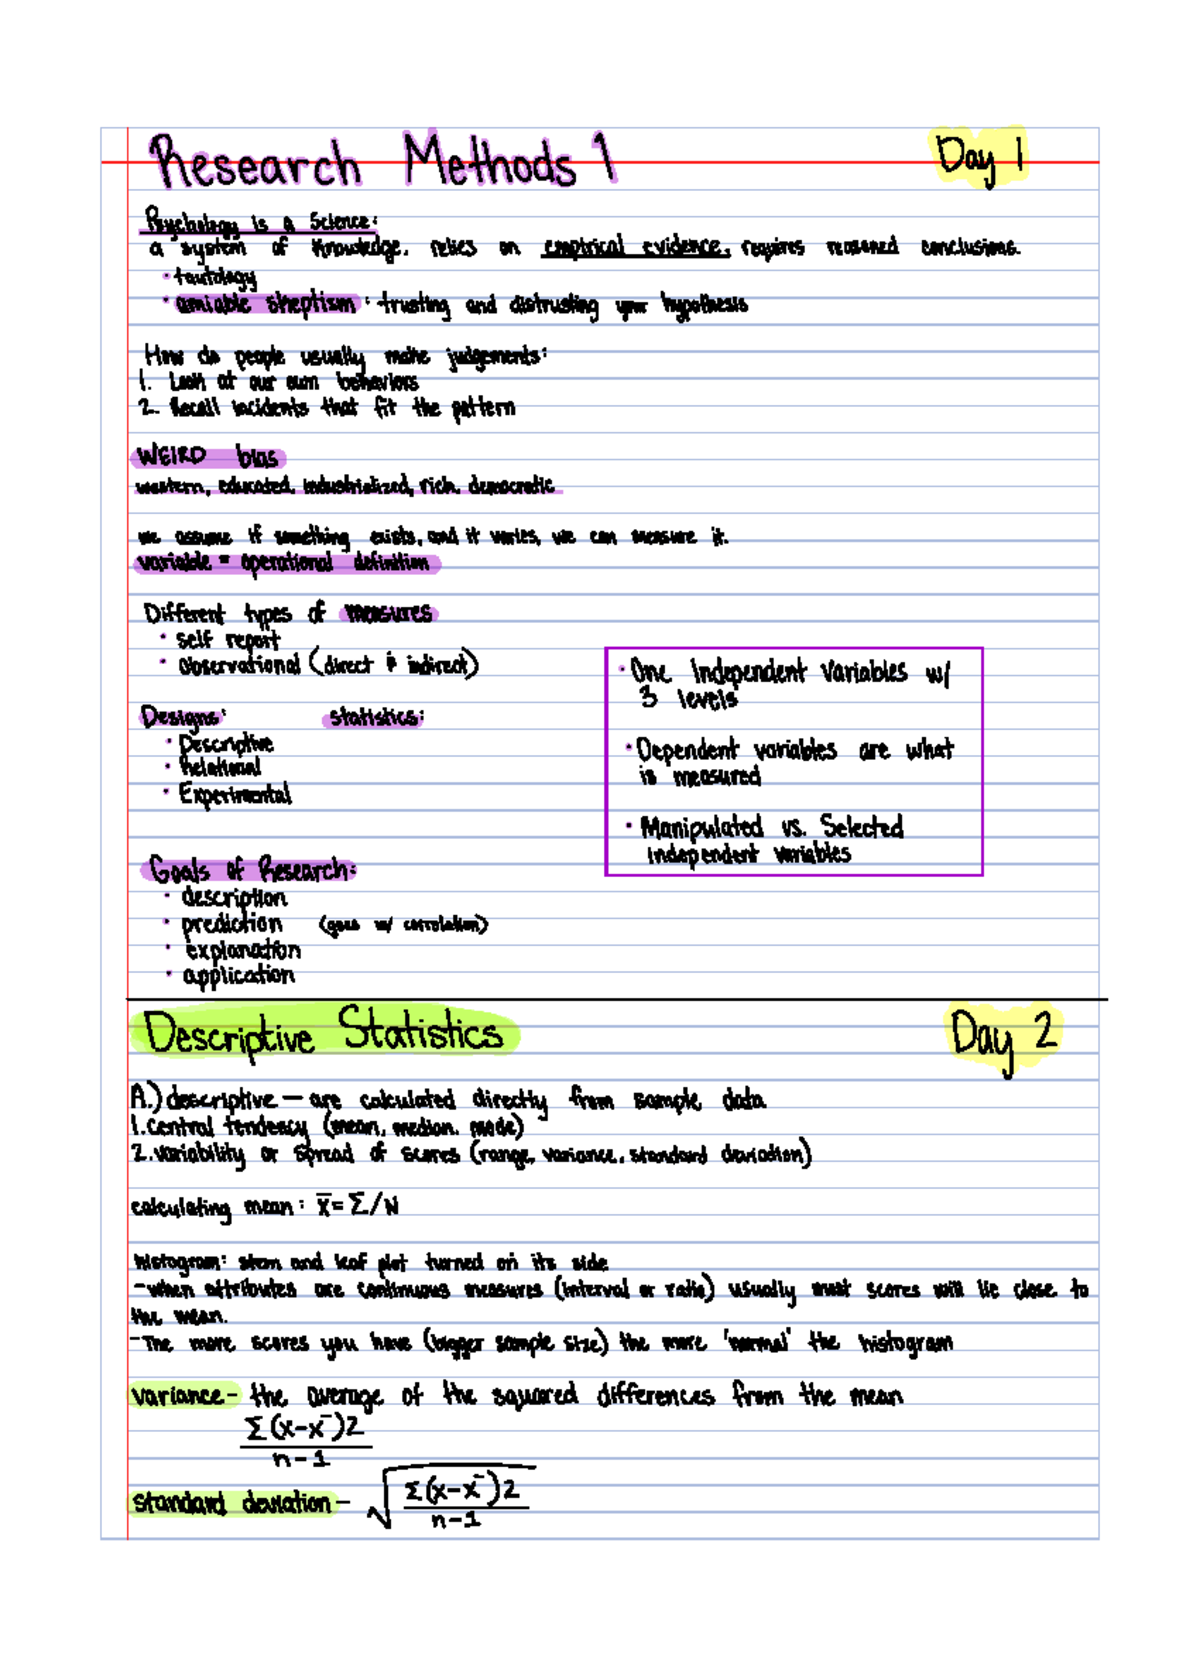 Research Methods 1
Day 1
Psychology is a Science:
a system of knowledge, relies on empirical evidence, requires reasoned conclusions.
· tautology
· amiable skeptism : trusting and distrusting your hypothesis
How do people usually make judgements:
1. Look at our own behaviors
2. Recall incidents that fit the pattern
WEIRD bias
western, educated, industrialized, rich, democratic
we assume if something exists, and it varies, we can measure it.
variable = operational definition
Different types of measures
· self report
· observational (direct & indirect)
Designs: statistics:
· Descriptive
· Relational
· Experimental
· One Independent Variables w/
3 levels
· Dependent variables are what
is measured
· Manipulated vs. Selected
Independent variables
Goals of Research:
· description
· prediction (goes w/ correlation)
· explanation
· application
Descriptive Statistics
Day 2
A.) descriptive — are calculated directly from sample data.
1. Central tendency (mean, median, mode)
2. variability or spread of scores (range, variance, standard deviation)
calculating mean : x̄ = Σ/N
histogram: stem and leaf plot turned on its side
-when attributes are continuous measures (interval or ratio) usually most scores will lie close to
the mean.
-The more scores you have (bigger sample size) the more 'normal' the histogram
variance- the average of the squared differences from the mean
Σ(x-x¯)2
n-1
standard deviation- √ Σ(x-x¯)2
n-1